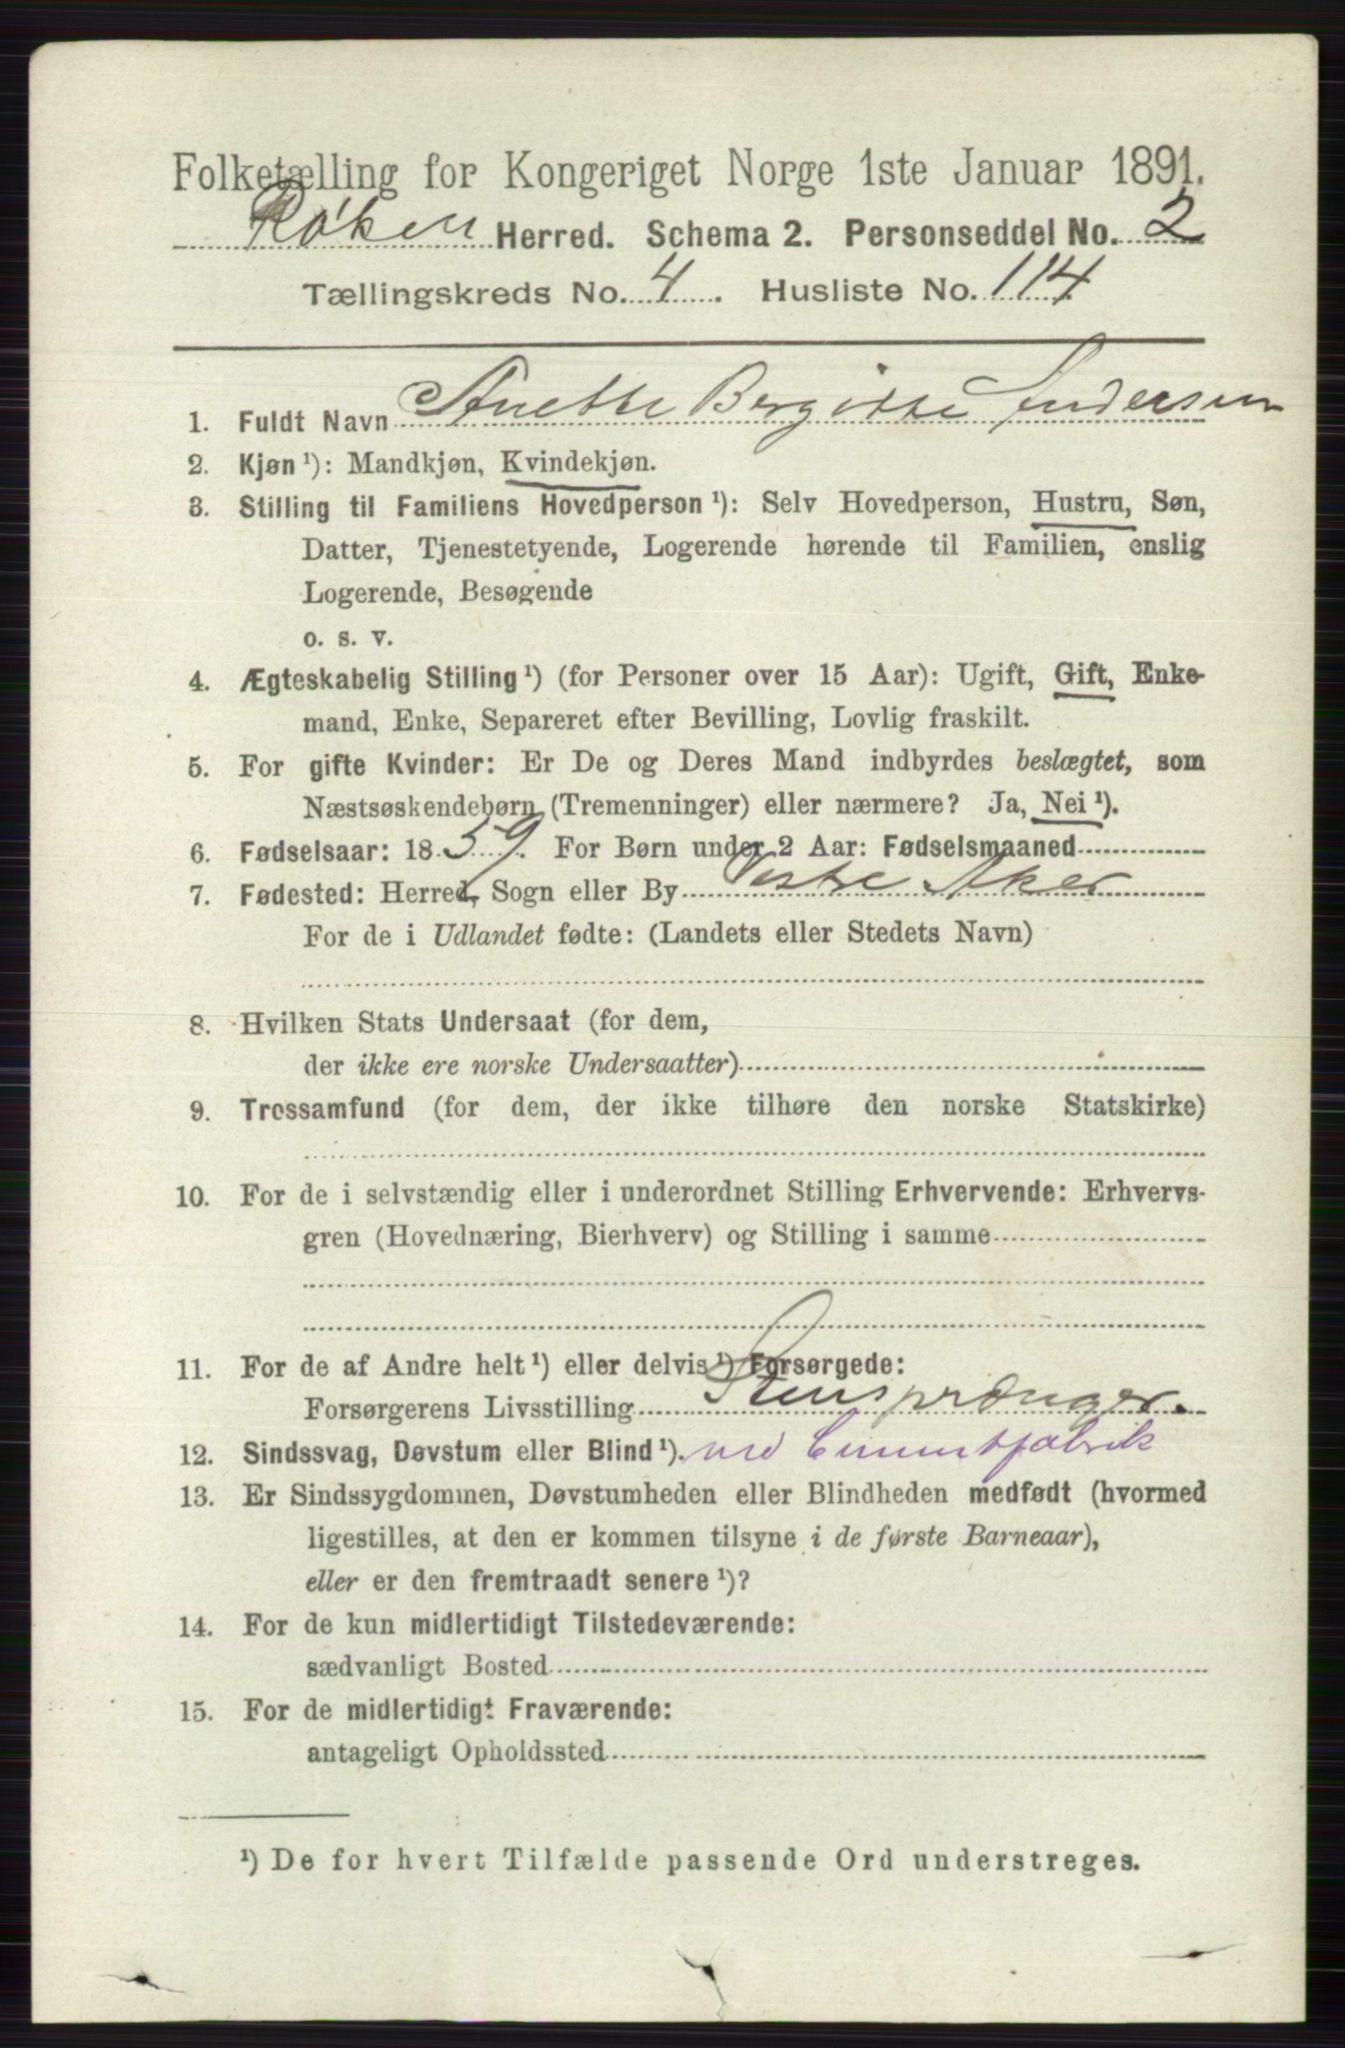 Folketælling for Kongeriget Norge 1ste Januar 1891.
Røken Herred. Schema 2. Personseddel No. 2
Tællingskreds No. 4. Husliste No. 114
1. Fuldt Navn Anette Bergitte Andersen
2. Kjøn ¹): Mandkjøn, Kvindekjøn.
3. Stilling til Familiens Hovedperson ¹): Selv Hovedperson, Hustru, Søn,
Datter, Tjenestetyende, Logerende hørende til Familien, enslig
Logerende, Besøgende
o. s. v.
4. Ægteskabelig Stilling ¹) (for Personer over 15 Aar): Ugift, Gift, Enke-
mand, Enke, Separeret efter Bevilling, Lovlig fraskilt.
5. For gifte Kvinder: Er De og Deres Mand indbyrdes beslægtet, som
Næstsøskendebørn (Tremenninger) eller nærmere? Ja, Nei ¹).
6. Fødselsaar: 1859. For Børn under 2 Aar: Fødselsmaaned
7. Fødested: Herred, Sogn eller By Vestre Aker
For de i Udlandet fødte: (Landets eller Stedets Navn)
8. Hvilken Stats Undersaat (for dem,
der ikke ere norske Undersaatter)
9. Trossamfund (for dem, der ikke tilhøre den norske Statskirke)
10. For de i selvstændig eller i underordnet Stilling Erhvervende: Erhvervs-
gren (Hovednæring, Bierhverv) og Stilling i samme
11. For de af Andre helt ¹) eller delvis ¹) Forsørgede:
Forsørgerens Livsstilling Stensprænger.
12. Sindssvag, Døvstum eller Blind ¹). ved Cementfabrik
13. Er Sindssygdommen, Døvstumheden eller Blindheden medfødt (hvormed
ligestilles, at den er kommen tilsyne i de første Barneaar),
eller er den fremtraadt senere ¹)?
14. For de kun midlertidigt Tilstedeværende:
sædvanligt Bosted
15. For de midlertidigt Fraværende:
antageligt Opholdssted
¹) De for hvert Tilfælde passende Ord understreges.